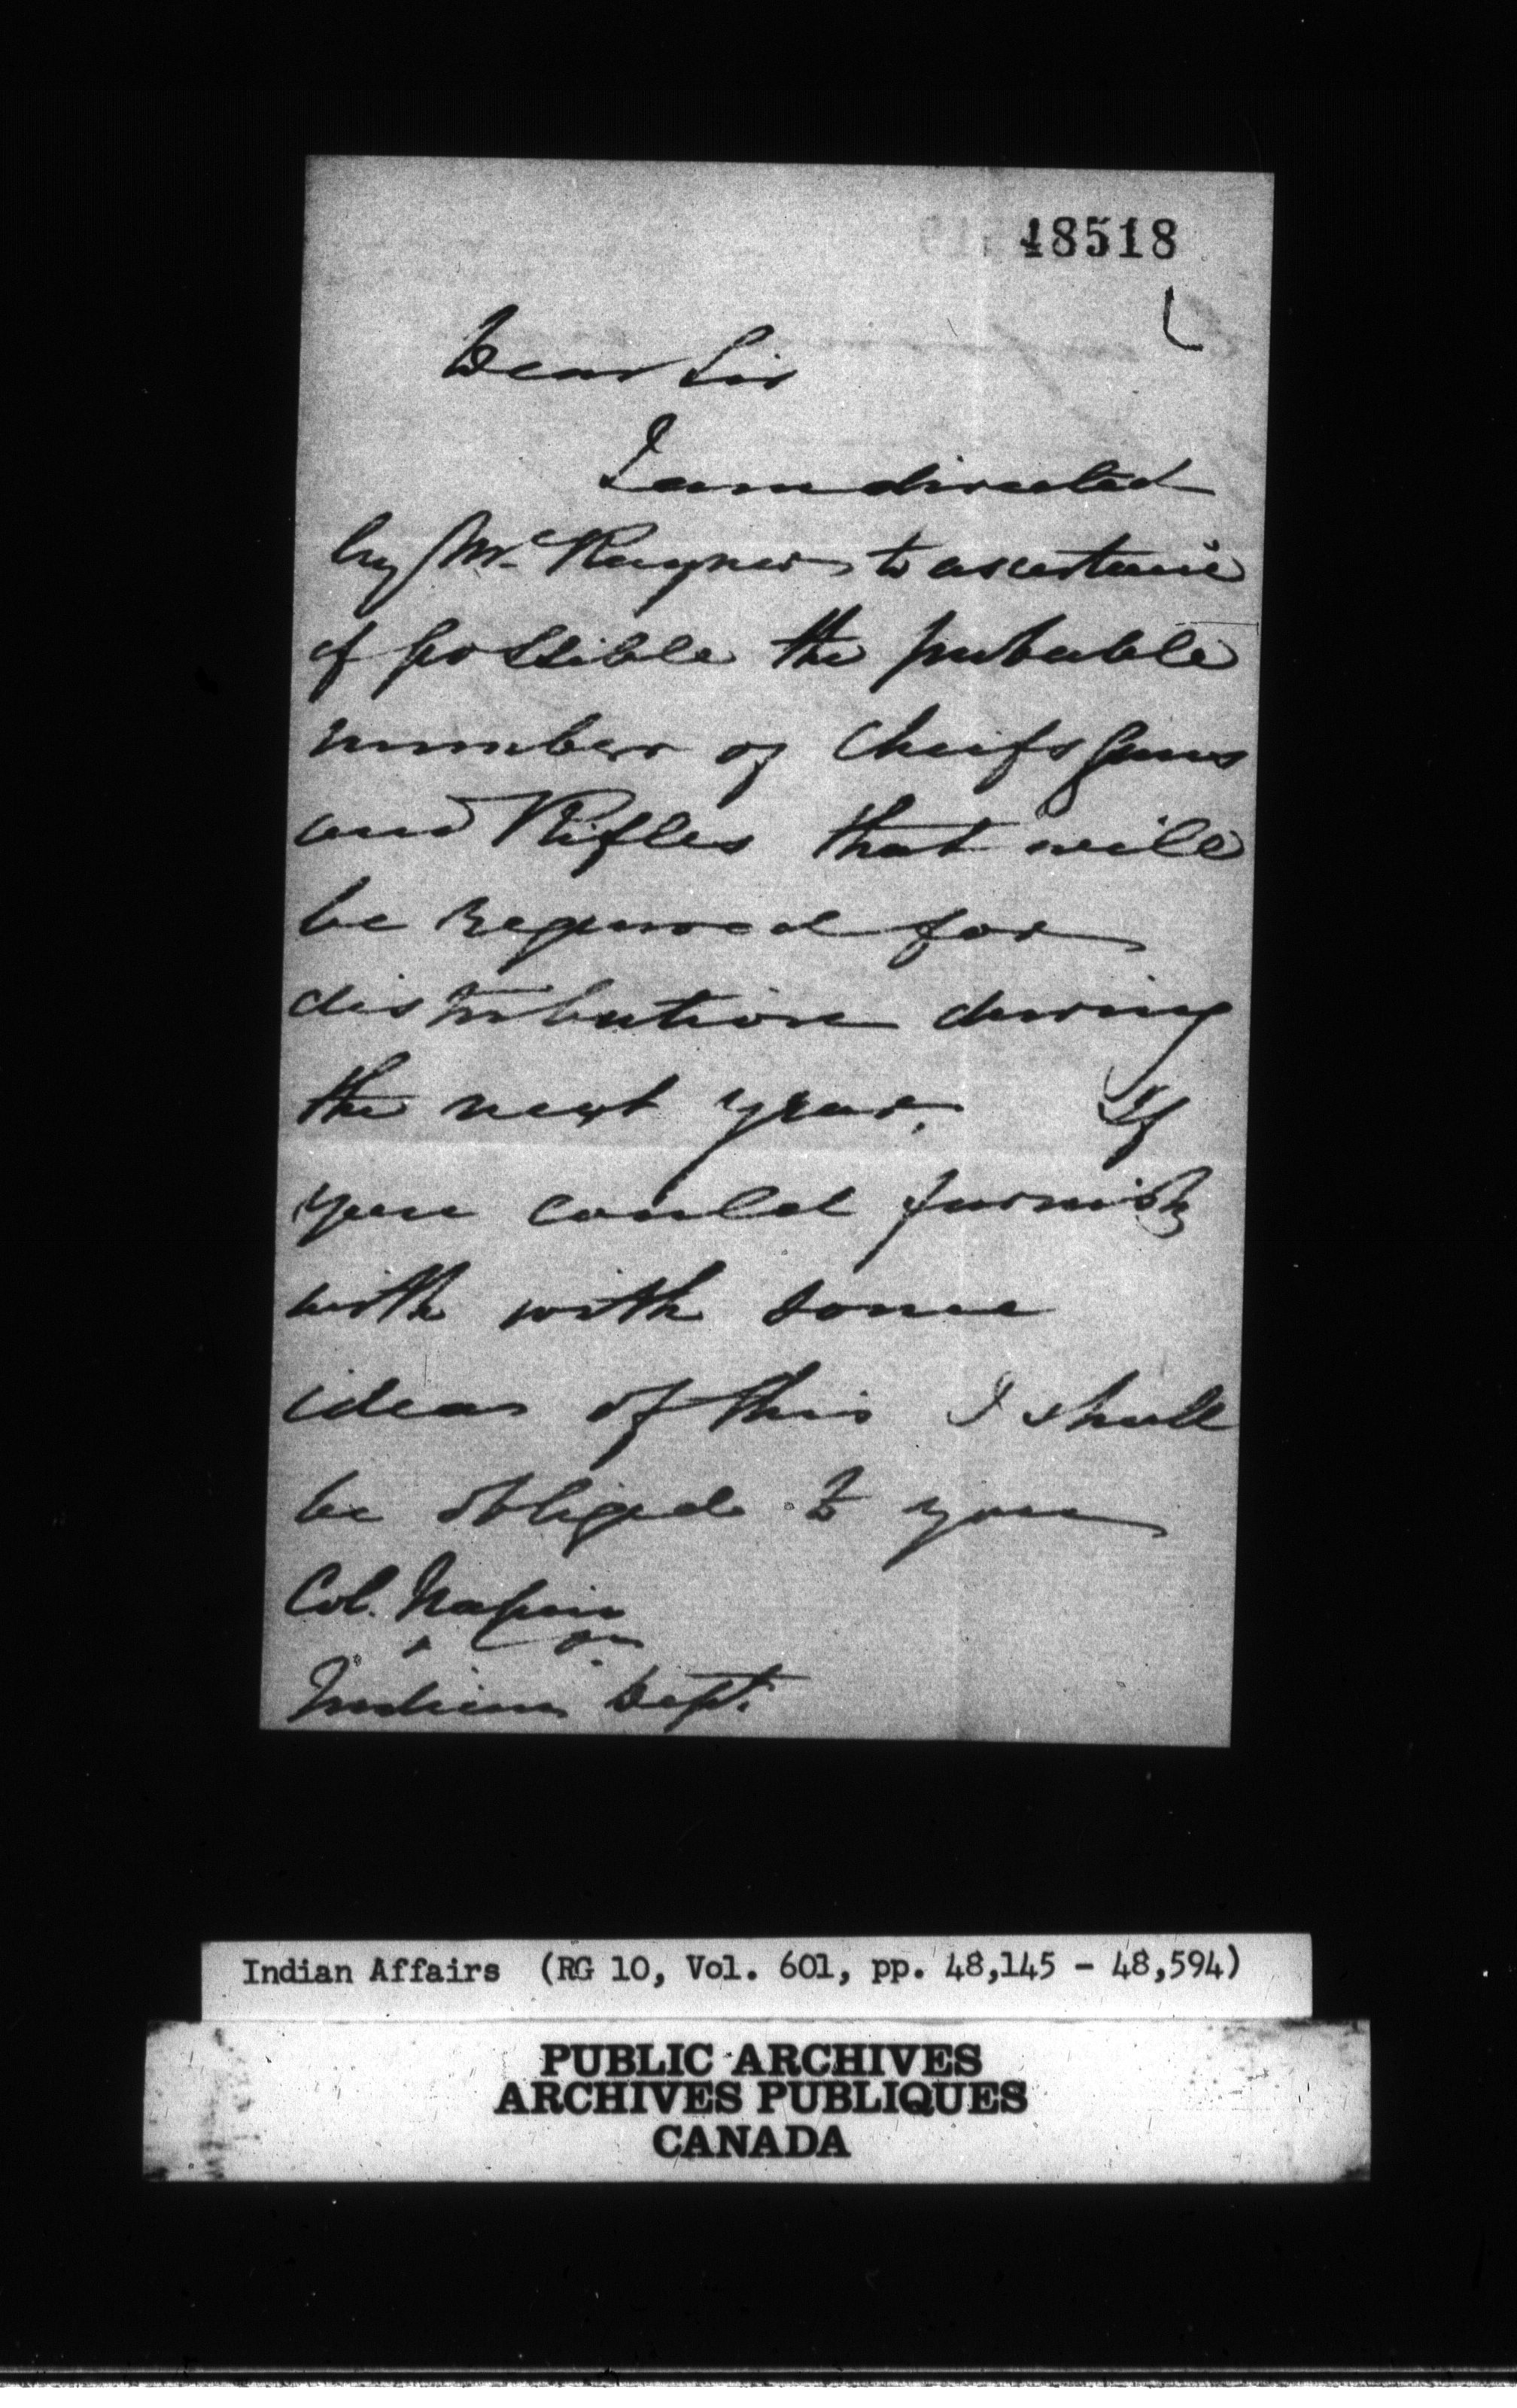 48518
Dear Sir
I am directed
by Mr. Rayner to ascertain
if possible the probable
number of Cheifs Guns
and Rifles that will
be required for
distribution during
the next year. If
you could furnish
with with some
ideas of this I shall
be obliged to you
Col. Napier
Indian Dept.
Indian Affairs (RG 10, Vol. 601, pp. 48,145 - 48,594)
PUBLIC ARCHIVES
ARCHIVES PUBLIQUES
CANADA